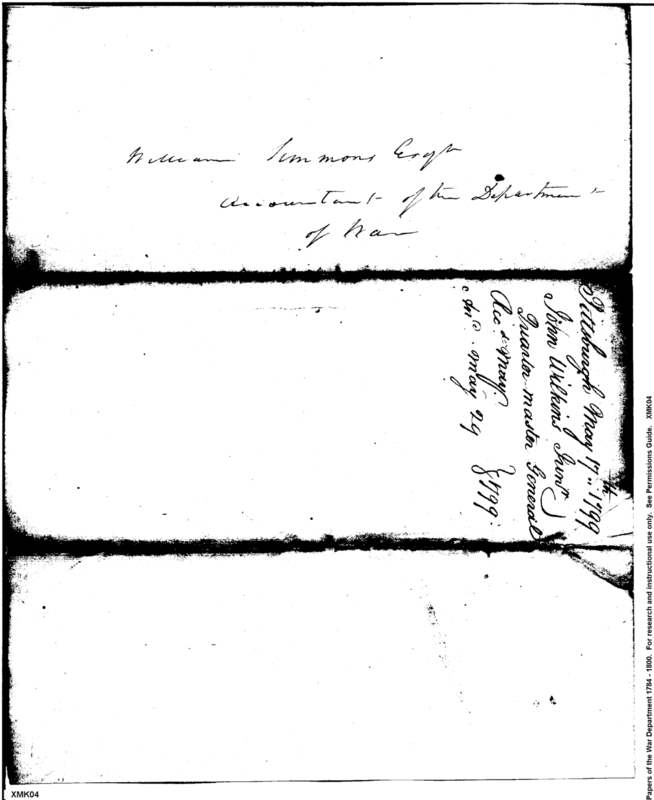 William Simmons Esqr
Accountant of the Department
of War
Pittsburgh May 17th 1799
John Wilkins Junr
Quarter master General
Recd May
Ansd May 29 1799.
Papers of the War Department 1784 - 1800. For research and instructional use only. See Permissions Guide. XMK04
XMK04